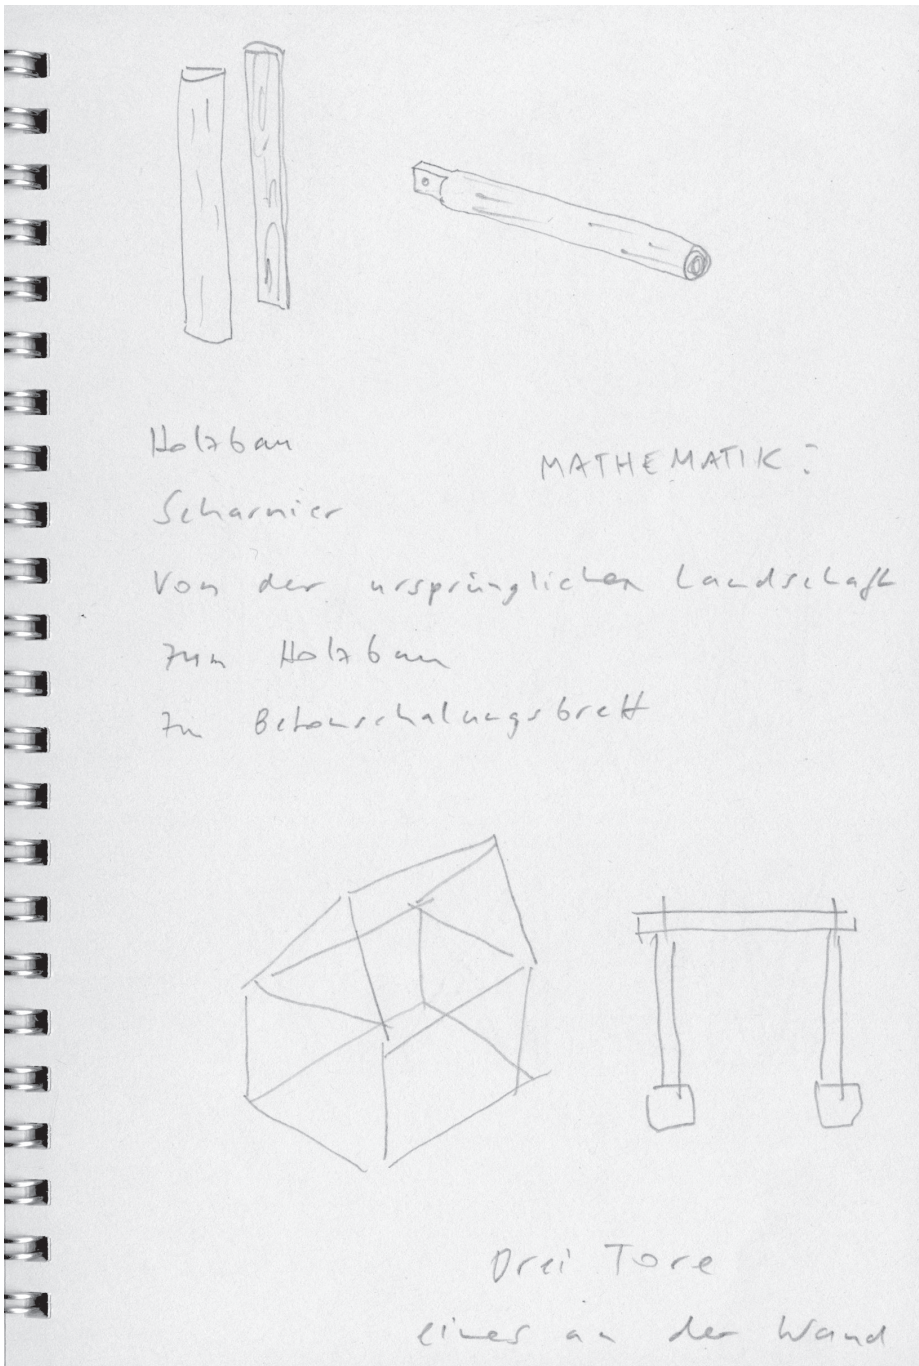 Holzbau
MATHEMATIK:
Scharnier
Von der ursprünglichen Landschaft
zum Holzbau
zu Betonschalungsbrett
Drei Tore
eines an der Wand